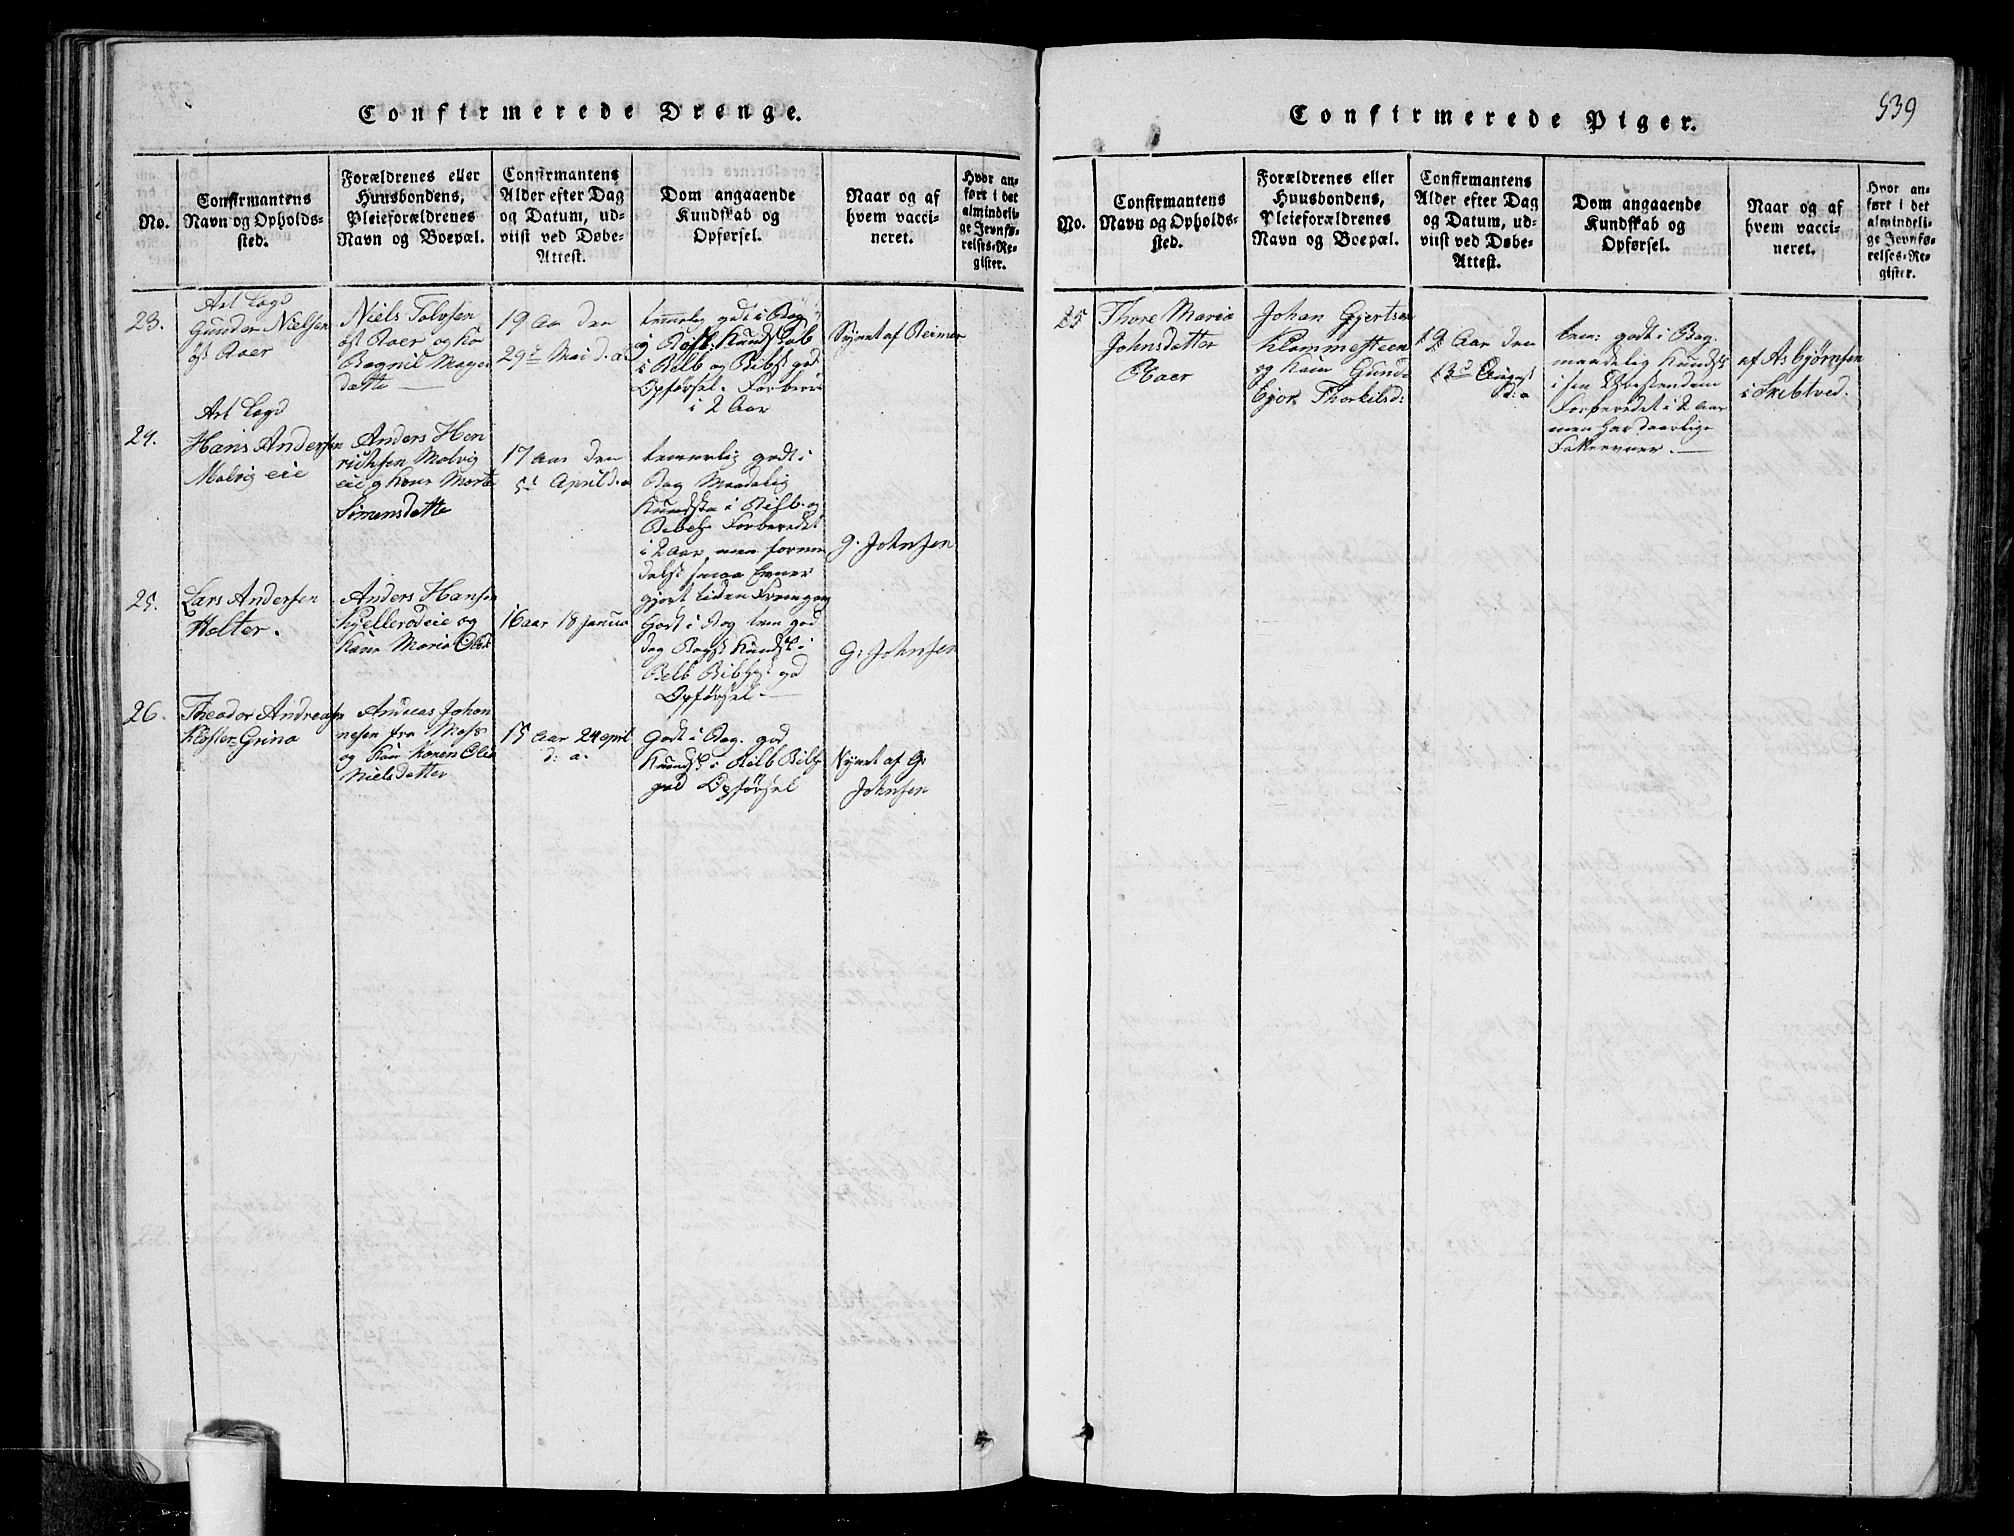 Confirmerede Drenge.
No.
Confirmantens
Navn og Opholds-
sted.
Forældrenes eller
Huusbondens,
Pleieforældrenes
Navn og Boepæl.
Confirmantens
Alder efter Dag
og Datum, ud-
viist ved Døbe-
Attest.
Dom angaaende
Kundskab og
Opførsel.
Naar og af
hvem vacci-
neret.
Hvor an-
ført i det
almindeli-
ge Jevnfø-
relses-Re-
gister.
23.
Gunder Nielsen
øst Raer
Niels Tolvsen
øst Raer og Ko
datte
19 Aar den
29d Mai d. a
temelig godt i Bog
g Relf: Kundskab
i Relb og Bibst god
Opførsel. Forbere
i 2 Aar
Synet af Reimar
24.
Hans Andersen
Molvig eie
Anders Hen
richsen Molvig
eie g Kone Marte
Simensdatte
17 aar den
5d April d. a
temerlig godt i
Bog Maadelig
Kundska i Rilb. og
Bibels Forberedet
i 2 Aar men formo
delst smaa Evner
gjort liden Fremgang
G. Johnsen
25.
Lars Andersen
Holter.
Anders Hansen
Kjellerødeie og
Kone Maria Olsd
16 aar 18 Janua
Godt i Bog tem god
dog Bogst Kundst i
Relb Bibhst god
Opførsel.
G. Johnsen
26.
Theodor Andreasen
Kloster-Grina
Andreas Johan
nesen fra Moss
og Kone Karen Olea
Nielsdatter
15 Aar 24 april
d. a.
Godt i Bog. god
Kundsk i Relb Bilh
god Opførsel
Synet af G.
Johnsen
Confirmerede Piger.
539
No.
Confirmantens
Navn og Opholds-
sted.
Forældrenes eller
Huusbondens,
Pleieforældrenes
Navn og Boepæl.
Confirmantens
Alder efter Dag
og Datum, ud-
viist ved Døbe-
Attest.
Dom angaaende
Kundskab og
Opførsel.
Naar og af
hvem vacci-
neret.
Hvor an-
ført i det
almindeli-
ge Jevnfø-
relses-Re-
gister.
25
Thore Maria
Johnsdatter
Raer
Johan Gjertsen
Klommesteen
og Kone Gunde
bjor Thorkelsd:
19 Aar den
13d August
d: a
tem: godt i Bog.
maadelig Kundsk
i sen Bestandem
Forberedet i 2 aar
men har daarlige
Fatteevner.
af Asbjørnsen
i Skibtved.